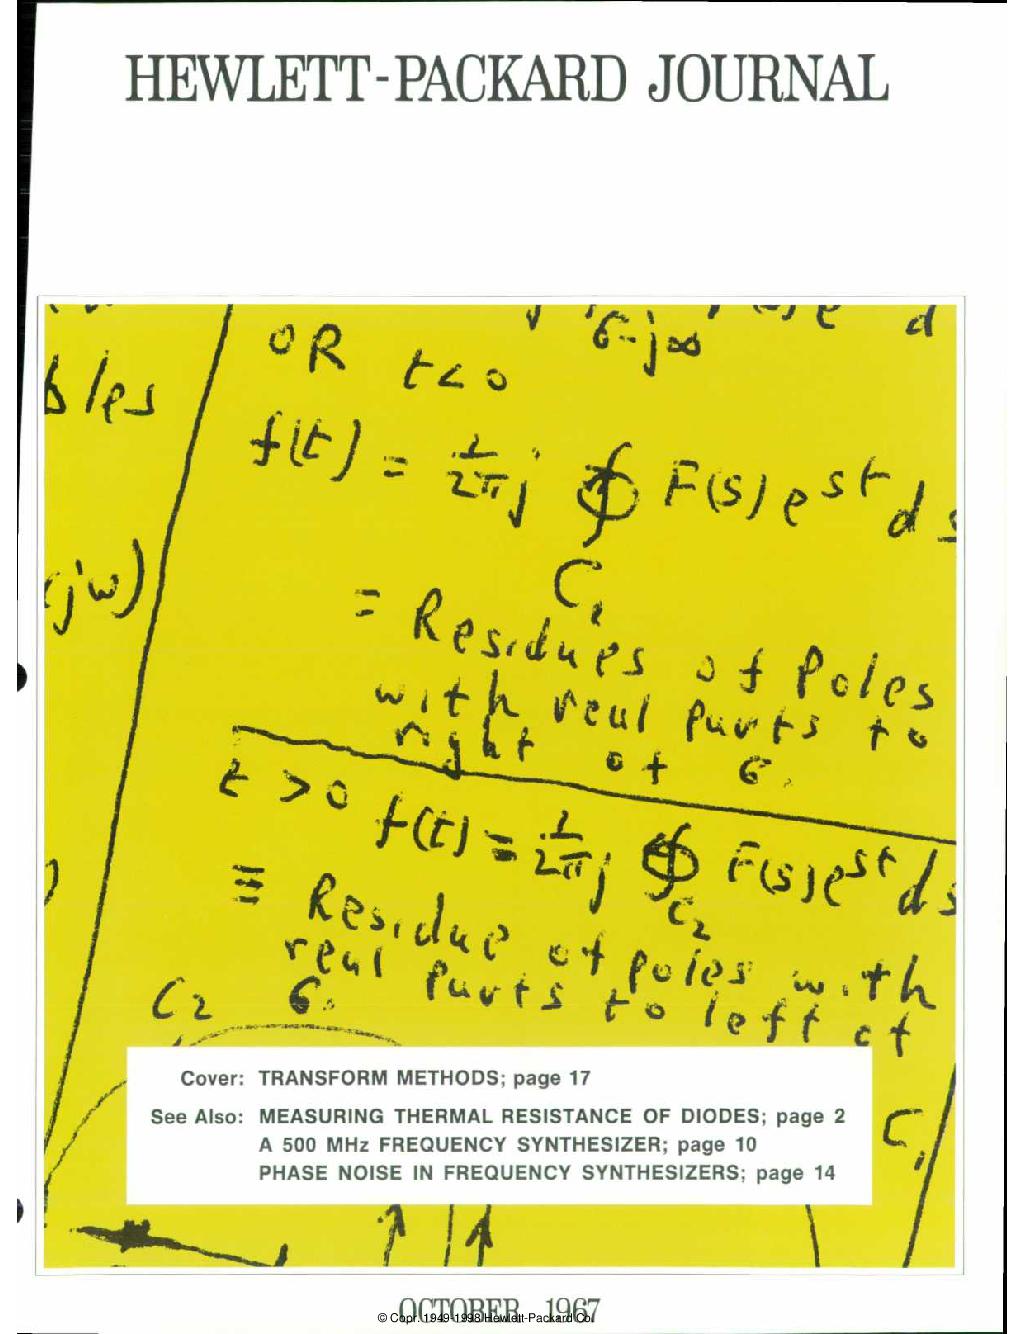 HEWLETT-PACKARD JOURNAL
σ-j∞
d
OR t<0
bles
f(t) = 1/2πj ∮ F(s) e^st ds
C₁
jω)
= Residues of Poles
with real parts to
right of σ.
t > 0 f(t) = 1/2πj ∮ F(s)e^st ds
C₂
≡ Residue of poles with
real parts to left of
σ.
C₂
Cover: TRANSFORM METHODS; page 17
See Also: MEASURING THERMAL RESISTANCE OF DIODES; page 2
A 500 MHz FREQUENCY SYNTHESIZER; page 10
PHASE NOISE IN FREQUENCY SYNTHESIZERS; page 14
C₁
OCTOBER 1967
© Copr. 1949-1998 Hewlett-Packard Co.